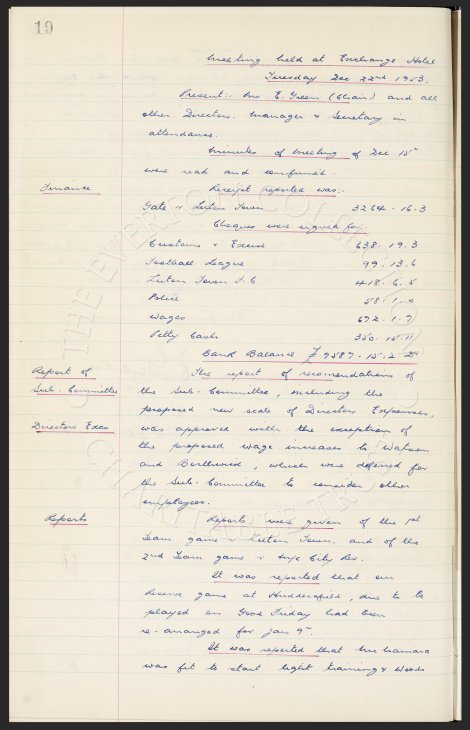 19
Meeting held at Exchange Hotel
Tuesday Dec 22nd 1953.
Present:- Mr E. Green (Chair) and all
other Directors. Manager & Secretary in
attendance.
Minutes of Meeting of Dec 15th
were read and confirmed.
Finance
Receipt reported was:-
Gate v Luton Town 3264 . 16 . 3
Cheques were signed for:-
Customs & Excise 638 . 19 . 3
Football League 99 . 13 . 6
Luton Town F.C 418 . 6 . 5
Police 58 . 1 . 0
Wages 672 . 1 . 7
Petty Cash 350 . 15 . 11
Bank Balance £ 9587 . 15 . 2
Report of
Sub-Committee
The report of recomendations of
the Sub-Committee, including the
proposed new scale of Directors Expenses,
Directors Exes
was approved with the exception of
the proposed wage increases to Watson
and Borthwick, which were deferred for
the Sub-Committee to consider other
employees.
Reports
Reports were given of the 1st
Team game v Luton Town, and of the
2nd Team game v City Res.
It was reported that our
Reserve game at Huddersfield, due to be
played on Good Friday had been
re-arranged for Jan 9th.
It was reported that McNamara
was fit to start light training & Woods
THE EVERTON COLLECTION
CHARITABLE TRUST